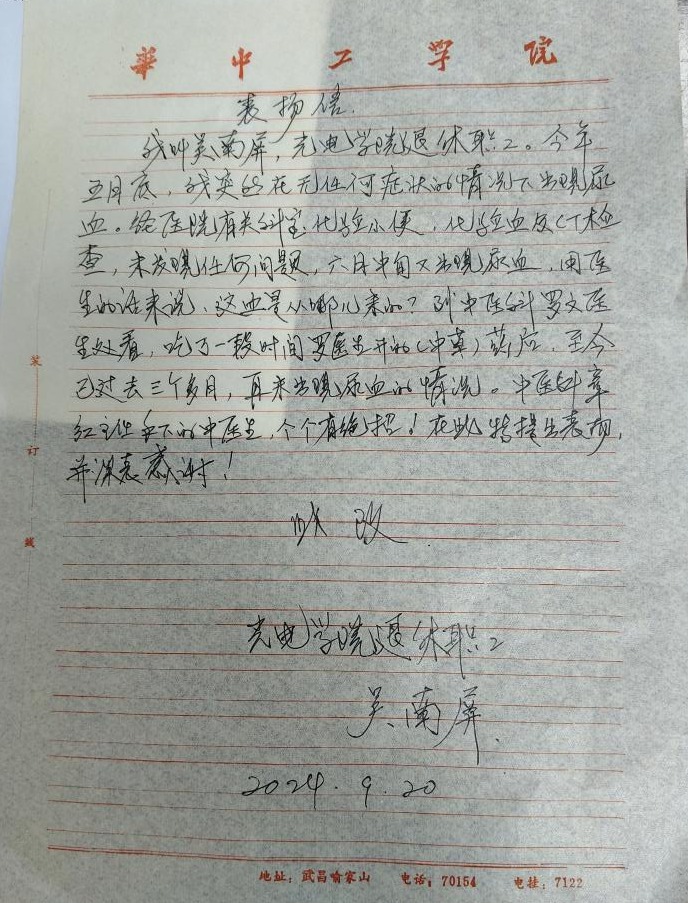 華中工学院
表扬信
我叫吴南屏，光电学院退休职工。今年
五月底，我突然在无任何症状的情况下出现尿
血。经医院有关科室化验小便，化验血及CT检
查，未发现任何问题，六月中旬又出现尿血，用医
生的话来说，这血是从哪儿来的？到中医科罗文医
生处看，吃了一段时间罗医生开的（中草）药后，至今
已过去三个多月，再未出现尿血的情况。中医科章
红主任手下的中医生，个个有绝招！在此特提出表扬，
并深表感谢！
此致
光电学院退休职工
吴南屏
2024.9.20
装
订
线
地址：武昌喻家山 电话：70154 电挂：7122